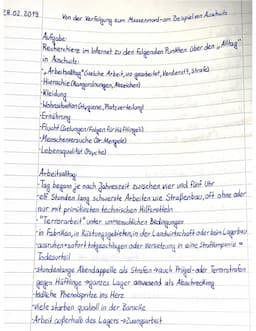 28.02.2019
Von der Verfolgung zum Massenmord am Beispiel von Auschwitz
Aufgabe:
Recherchiere im Internet zu den folgenden Punkten über den „Alltag"
in Auschwitz:
- „Arbeitsalltag" (welche Arbeit, wo gearbeitet, Verdienst?, Strafe)
- Hierarchie (Rangordnungen, Abzeichen)
- Kleidung
- Wohnsituation (Hygiene, Platzverteilung)
- Ernährung
- Flucht (Gelungen/Folgen für Häftlinge?)
- Menschenversuche (Dr. Mengele)
- Lebensqualität (Psyche)
Arbeitsalltag
- Tag begann je nach Jahreszeit zwischen vier und fünf Uhr
- elf Stunden lang schwerste Arbeiten wie Straßenbau, oft ohne oder
nur mit primitivsten technischen Hilfsmitteln
- "Terrorarbeit" unter unmenschlichen Bedingungen
- in Fabriken, in Rüstungsbetrieben, in der Landwirtschaft oder beim Lagerbau
- ausruhen = sofort totgeschlagen oder Versetzung in eine Strafkompanie =
Todesurteil
- stundenlange Abendappelle als Strafen → auch Prügel- oder Terrorstrafen
gegen Häftlinge → ganzes Lager anwesend als Abschreckung
- tödliche Phenolspritze ins Herz
- viele starben qualvoll in der Baracke
- Arbeit außerhalb des Lagers → Zwangsarbeit